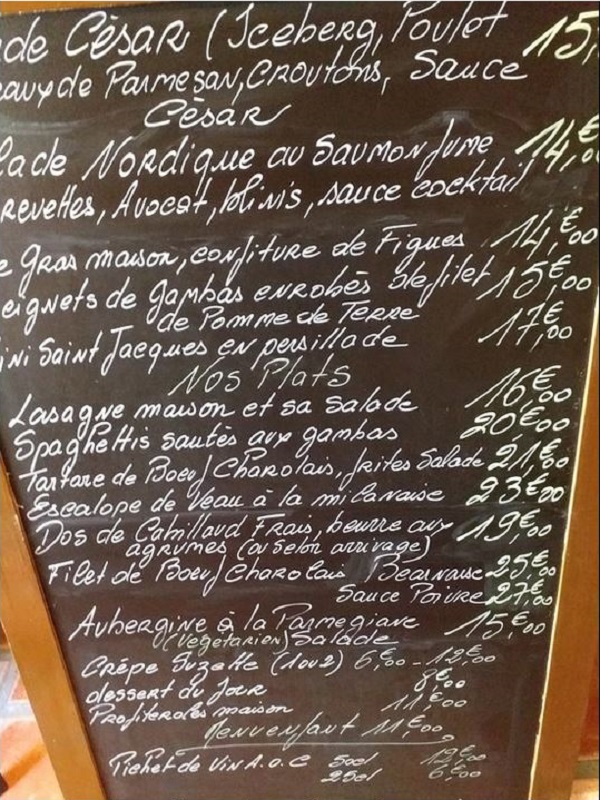 de CÉSAR (Iceberg, Poulet 15,
eaux de Parmesan, CROUTONS, Sauce
CÈSAR
lade Nordique au Saumon fume 14€,00
revettes, Avocat, blinis, sauce cocktail
e Gras maison, confiture de Figues 14€,00
eignets de gambas enrobès de filet 15€,00
de Pomme de Terre
ini Saint Jacques en persillade 17€,00
Nos Plats
Lasagne maison et sa Salade 16€,00
Spaghettis sautès aux gambas 20€,00
Tartare de Boeuf Charolais, frites Salade 21€,00
Escalope de Veau à la milanaise 23€00
Dos de Cabillaud Frais, beurre aux 19€,00
agrumes (ou Selon arrivage)
Filet de Boeuf Charolais Bearnaise 25€,00
Sauce Poivre 27€,00
Aubergine à la Parmegiane 15€,00
(Vegetarien) Salade
Crêpe Suzette (1 ou 2) 6€,00 - 12€,00
dessert du Jour 8€,00
Profiteroles maison 11€,00
Menu enfant 11€,00
Pichet de Vin A.O.C 50cl 12€,00
25cl 6€,00